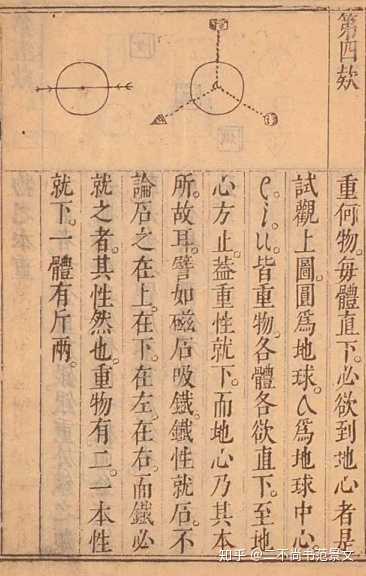 第四欵
重何物。每體直下。必欲到地心者是
試觀上圖。圓爲地球。a爲地球中心。
e。i。u。皆重物。各體各欲直下。至地
心方止。葢重性就下。而地心乃其本
所。故耳。譬如磁石吸鐵。鐵性就石。不
論石之在上。在下。在左。在右。而鐵必
就之者。其性然也。重物有二。一本性
就下。一體有斤兩。
知乎 @二不尚书范景文